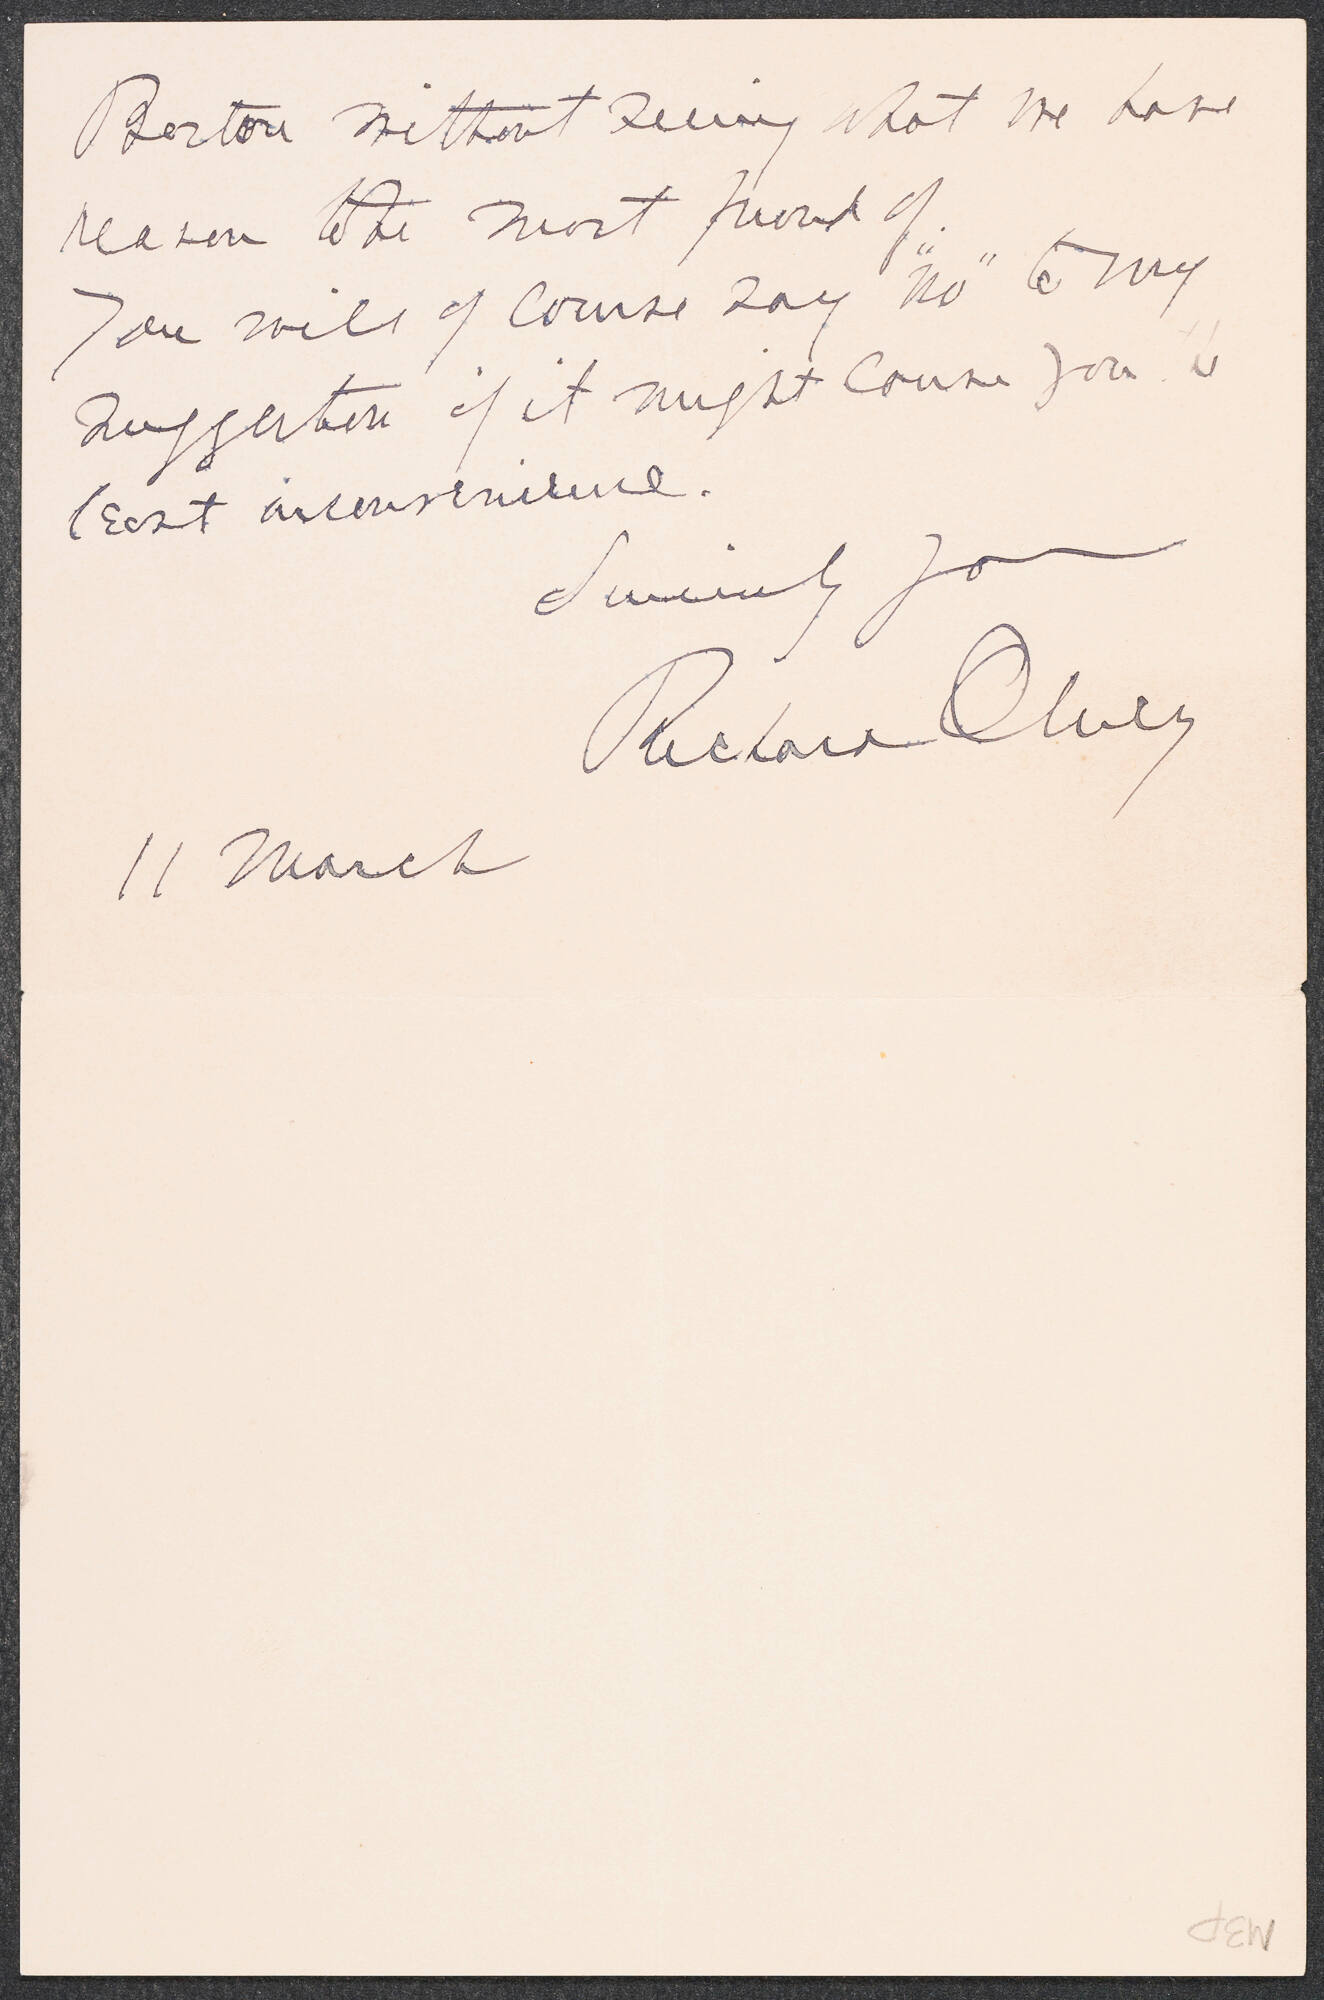 Boston without seeing what we have
reason to be most proud of.
You will of course say "no" to my
suggestion if it might cause you the
least inconvenience.
Sincerely yours
Richard Olney
11 March